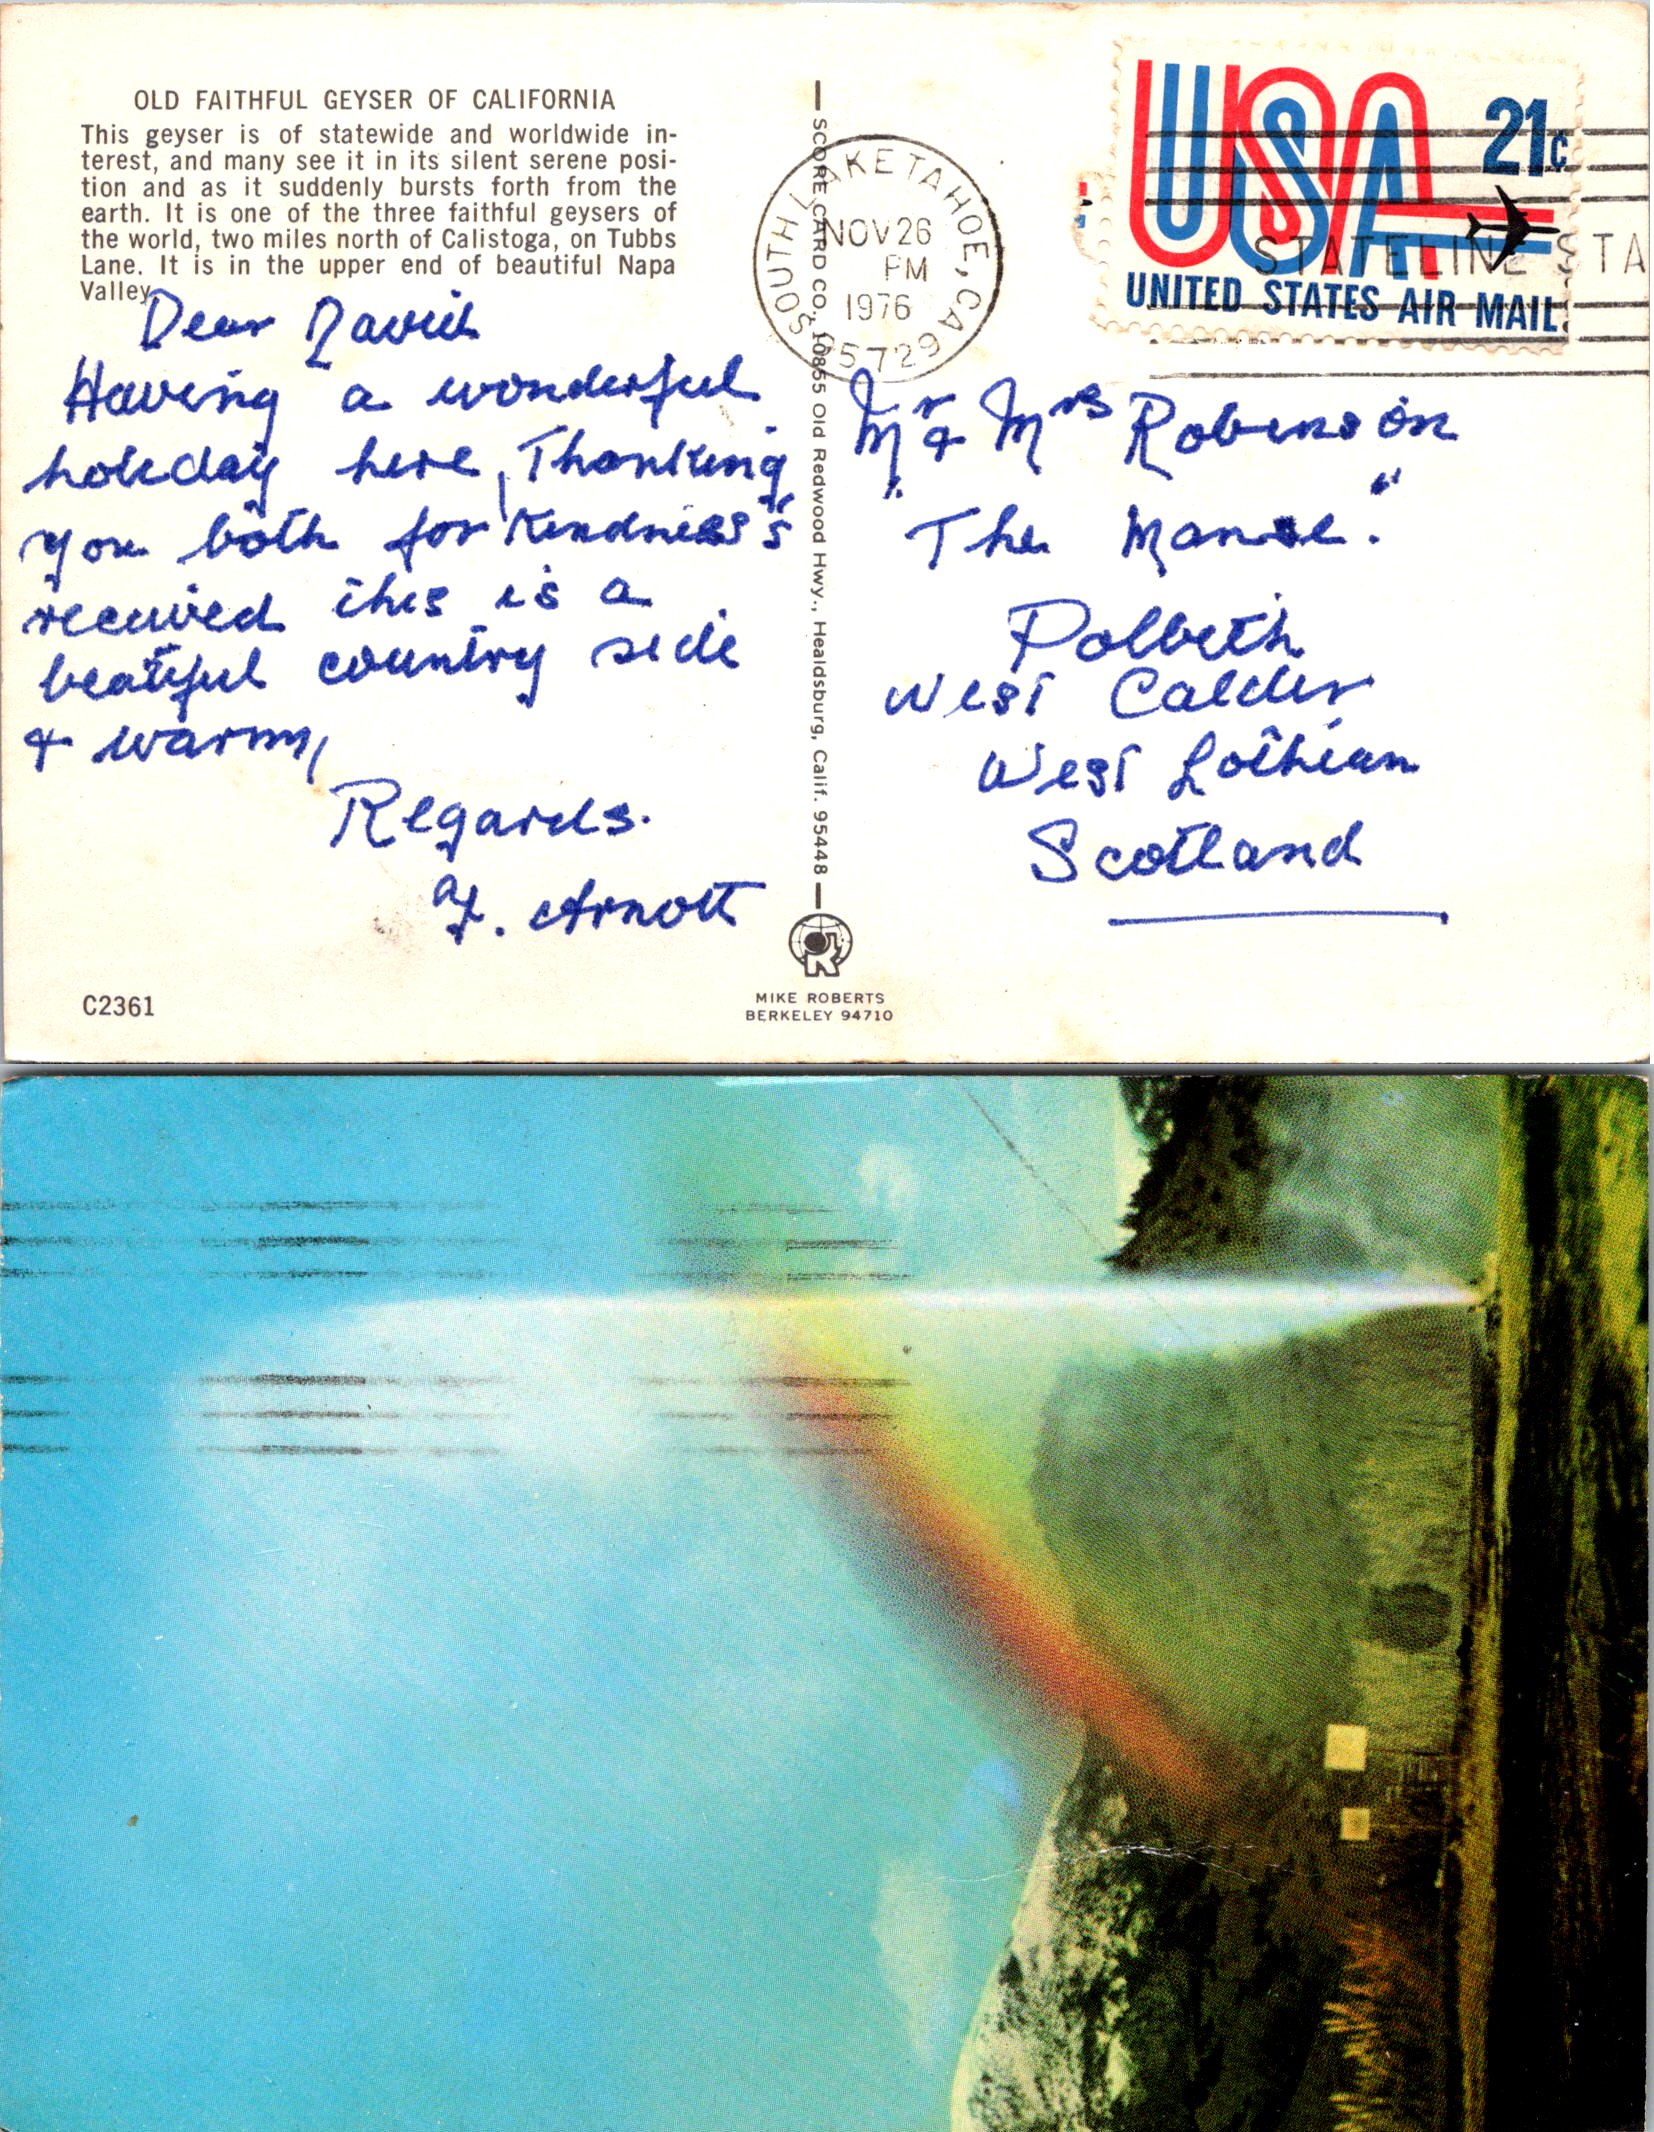 OLD FAITHFUL GEYSER OF CALIFORNIA
This geyser is of statewide and worldwide in-
terest, and many see it in its silent serene posi-
tion and as it suddenly bursts forth from the
earth. It is one of the three faithful geysers of
the world, two miles north of Calistoga, on Tubbs
Lane. It is in the upper end of beautiful Napa
Valley.
Dear David
Having a wonderful
holiday here, Thanking
you both for Kindness's
received this is a
beatiful country side
& warm,
Regards.
Arnott
C2361
SCORE CARD CO., 10855 Old Redwood Hwy., Healdsburg, Calif. 95448
MIKE ROBERTS
BERKELEY 94710
SOUTH LAKE TAHOE, CA 95729
NOV 26
PM
1976
USA
21c
UNITED STATES AIR MAIL
STATELINE STA
Mr & Mrs Robinson
"The Manse."
Polbeth
West Calder
West Lothian
Scotland